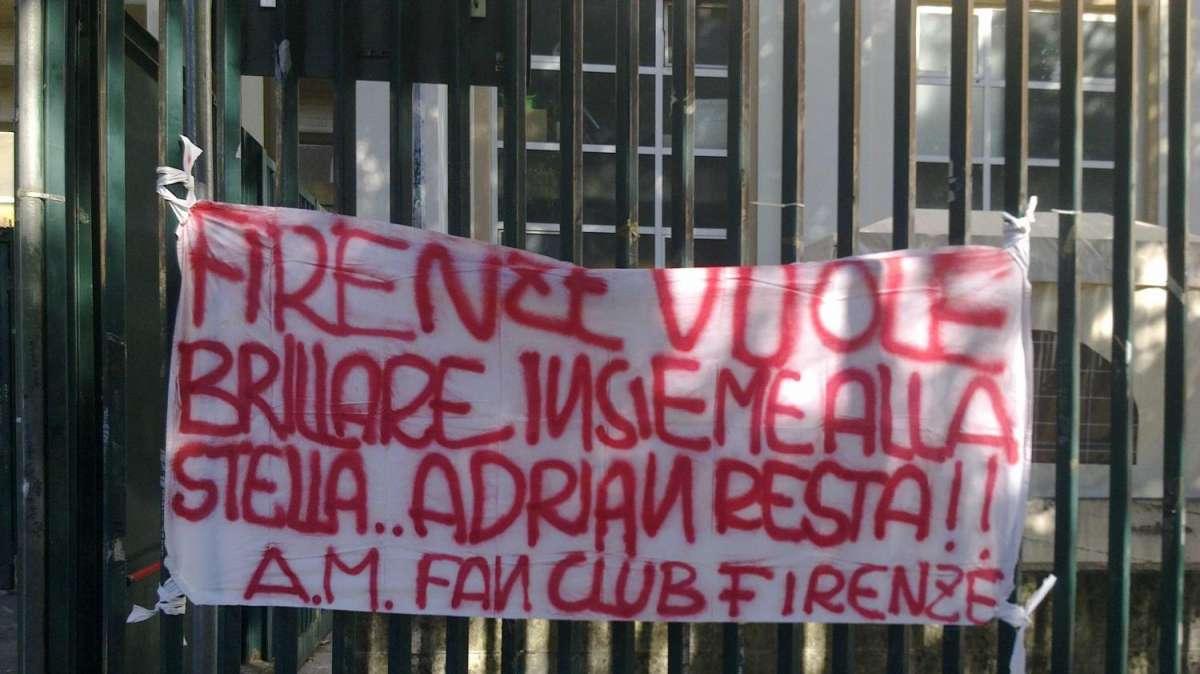 FIRENZE VUOLE
BRILLARE INSIEME ALLA
STELLA.. ADRIAN RESTA!!
A.M. FAN CLUB FIRENZE